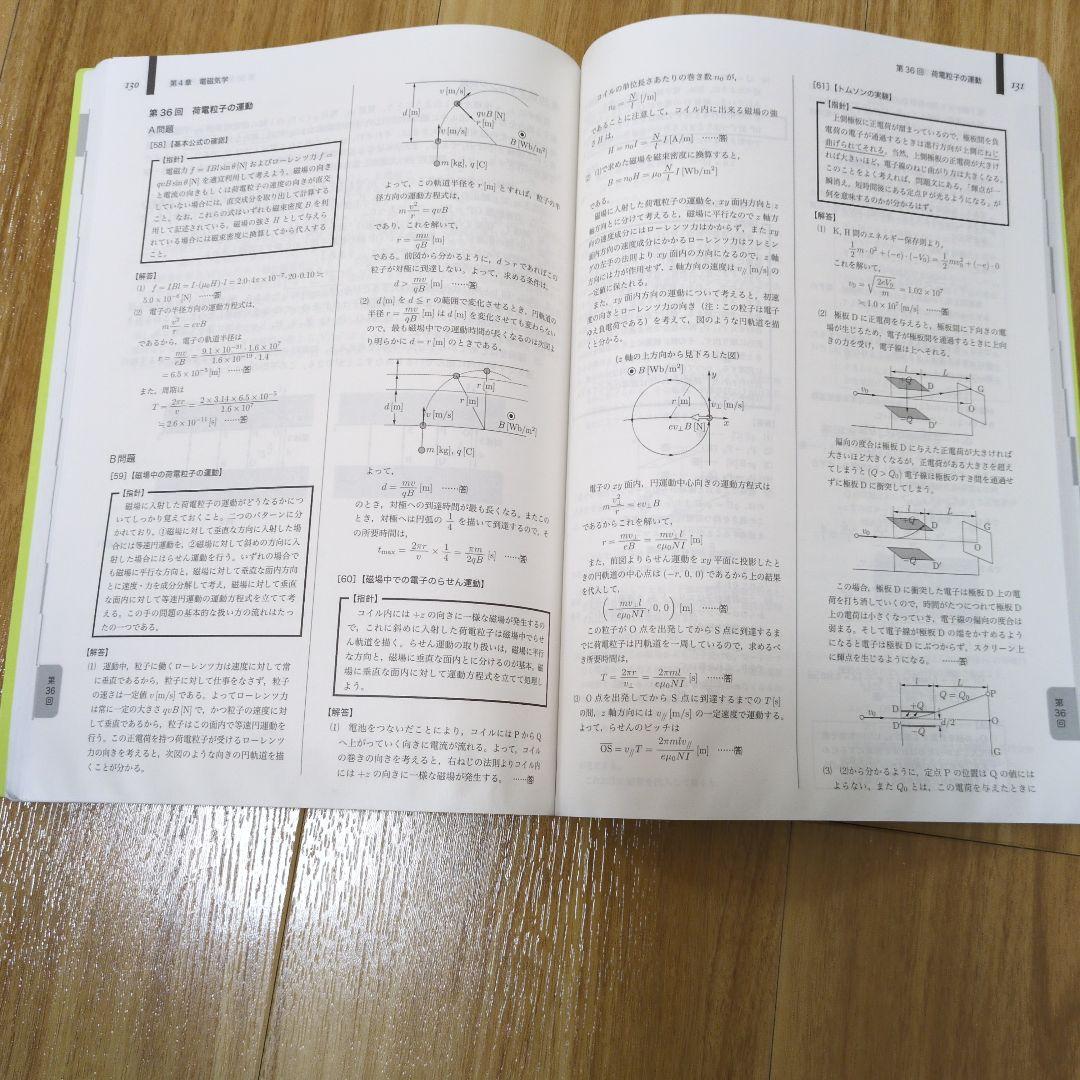 130
第4章 電磁気学
第36回 荷電粒子の運動
A問題
[58]【基本公式の確認】
【指針】
電磁力 f = IBl sinθ [N] およびローレンツ力 f =
qvB sinθ [N] を適宜利用して考えよう。磁場の向き
と電流の向きもしくは荷電粒子の速度の向きが直交
していない場合には，直交成分を取り出して計算する
こと。なお，これらの式はいずれも磁束密度 B を利
用して記述されている。磁場の強さ H として与えら
れている場合には磁束密度に換算してから代入する
こと。
【解答】
(1) f = IBl = I·(μ₀H)·l = 2.0·4π × 10⁻⁷·20·0.10 ≒
5.0 × 10⁻⁶ [N] ……答
(2) 電子の半径方向の運動方程式は，
m v²/r = evB
であるから，電子の軌道半径は
r = mv/eB = 9.1 × 10⁻³¹·1.6 × 10⁷/1.6 × 10⁻¹⁹·1.4
= 6.5 × 10⁻⁵ [m] ……答
また，周期は
T = 2πr/v = 2 × 3.14 × 6.5 × 10⁻⁵/1.6 × 10⁷
≒ 2.6 × 10⁻¹¹ [s] ……答
B問題
[59]【磁場中の荷電粒子の運動】
【指針】
磁場に入射した荷電粒子の運動がどうなるかにつ
いてしっかり覚えておくこと。二つのパターンに分
かれており，①磁場に対して垂直な方向に入射した場
合には等速円運動を，②磁場に対して斜めの方向に入
射した場合にはらせん運動を行う。いずれの場合で
も磁場に平行な方向と，磁場に対して垂直な面内方向
とに速度・力を成分分解して考え，磁場に対して垂直
な面内に対して等速円運動の運動方程式を立てて考
える。この手の問題の基本的な扱い方の流れはたっ
たの一つである。
【解答】
(1) 運動中，粒子に働くローレンツ力は速度に対して常
に垂直であるから，粒子に対して仕事をなさず，粒子
の速さは一定値 v [m/s] である。よってローレンツ力
は常に一定の大きさ qvB [N] で，かつ粒子の速度に対
して垂直であるから，粒子はこの面内で等速円運動を
行う。この正電荷を持つ荷電粒子が受けるローレンツ
力の向きを考えると，次図のような向きの円軌道を描
くことが分かる。
第36回
d [m]
v [m/s]
qvB [N]
r [m]
v [m/s]
B [Wb/m²]
m [kg], q [C]
よって，この軌道半径を r [m] とすれば，粒子の半
径方向の運動方程式は，
m v²/r = qvB
であり，これを解いて，
r = mv/qB [m]
である。前図から分かるように，d > r であればこの
粒子が対極に到達しない。よって，求める条件は，
d > mv/qB [m] ……答
(2) d [m] を d ≦ r の範囲で変化させるとき，円軌道の
半径 r = mv/qB [m] は d [m] を変化させても変わらない
ので，最も磁場中での運動時間が長くなるのは次図よ
り明らかに d = r [m] のときである。
r [m]
d [m]
r [m]
v [m/s]
B [Wb/m²]
m [kg], q [C]
よって，
d = mv/qB [m] ……答
のとき，対極への到達時間が最も長くなる。またこの
とき，対極へは円弧の 1/4 を描いて到達するので，そ
の所要時間は，
tmax = 2πr/v × 1/4 = πm/2qB [s] ……答
[60]【磁場中での電子のらせん運動】
【指針】
コイル内には +z の向きに一様な磁場が発生するの
で，これに斜めに入射した荷電粒子は磁場中でらせ
ん軌道を描く。らせん運動の取り扱いは，磁場に平行
な方向と，磁場に垂直な面内とに分けるのが基本。磁
場に垂直な面内に対して運動方程式を立てて処理し
よう。
【解答】
(1) 電池をつないだことにより，コイルには P から Q
へ上がっていく向きに電流が流れる。よって，コイル
の巻きの向きを考えると，右ねじの法則よりコイル内
には +z の向きに一様な磁場が発生する。 ……答
コイルの単位長さあたりの巻き数 n₀ が，
n₀ = N/l [/m]
であることに注意して，コイル内に出来る磁場の強
さ H は，
H = n₀I = N/l I [A/m] ……答
(2) (1)で求めた磁場を磁束密度に換算すると，
B = μ₀H = μ₀ N/l I [Wb/m²]
である。
磁場に入射した荷電粒子の運動を，xy 面内方向と z
軸方向とに分けて考えると，磁場に平行なので z 軸方
向の速度成分にはローレンツ力はかからず，また xy
面内方向の速度成分にかかるローレンツ力はフレミン
グの左手の法則より xy 面内の方向になるので，z 軸
方向には力が作用せず，z 軸方向の速度は v∥ [m/s] の
一定値に保たれる。
また，xy 面内方向の運動について考えると，初速
度の向きとローレンツ力の向き（注：この粒子は電子
ゆえ負電荷である）を考えて，図のような円軌道を描
くと分かる。
（z 軸の上方向から見下ろした図）
B [Wb/m²]
y
r [m]
v⊥ [m/s]
x
ev⊥B [N]
電子の xy 面内，円運動中心向きの運動方程式は
m v²⊥/r = ev⊥B
であるからこれを解いて，
r = mv⊥/eB = mv⊥l/eμ₀NI [m]
また，前図よりらせん運動を xy 平面に投影したと
きの円軌道の中心点は (−r, 0, 0) であるから上の結果
を代入して，
(−mv⊥l/eμ₀NI, 0, 0) [m] ……答
この粒子が O 点を出発してから S 点に到達するま
でに荷電粒子は円軌道を一周しているので，求めるべ
き所要時間は，
T = 2πr/v⊥ = 2πml/eμ₀NI [s] ……答
(3) O 点を出発してから S 点に到達するまでの T [s]
の間，z 軸方向には v∥ [m/s] の一定速度で運動する。
よって，らせんのピッチは
OS = v∥T = 2πmlv∥/eμ₀NI [m] ……答
第36回 荷電粒子の運動
131
[61]【トムソンの実験】
【指針】
上側極板に正電荷が溜まっているので，極板間を負
電荷の電子が通過するときは進行方向が上側にねじ
曲げられてそれる。当然，上側極板の正電荷が大きけ
れば大きいほど，電子線のねじ曲がり方は大きくなる。
このことをよく考えれば，問題文にある，「輝点が一
瞬消え，短時間後にある定点Pが光るようになる」が
何を意味するのかが分かるはず。
【解答】
(1) K, H 間のエネルギー保存則より，
1/2 m·0² + (−e)·(−V₀) = 1/2 mv₀² + (−e)·0
これを解いて，
v₀ = √(2eV₀/m) = 1.02 × 10⁷
≒ 1.0 × 10⁷ [m/s] ……答
(2) 極板 D に正電荷を与えると，極板間に下向きの電
場が生じるため，電子が極板間を通過するときに上向
きの力を受け，電子線は上へそれる。
l
L
+Q
D
G
v₀
O
−Q
D′
偏向の度合は極板 D に与えた正電荷が大きければ
大きいほど大きくなるが，正電荷がある大きさを超え
てしまうと (Q > Q₀) 電子線は極板のすき間を通過せ
ずに極板 D に衝突してしまう。
l
L
+Q
D
G
v₀
O
−Q
D′
この場合，極板 D に衝突した電子は極板 D 上の電
荷を打ち消していくので，時間がたつにつれて極板 D
上の電荷は小さくなっていき，電子線の偏向の度合は
弱まる。そして電子線が極板 D の端をかすめるよう
になると電子は極板 D にぶつからず，スクリーン上
に輝点を生じるようになる。 ……答
l
L
Q = Q₀
P
+Q
D
v₀
d/2
O
−Q
G
(3) (2)から分かるように，定点 P の位置は Q の値には
よらない。また Q₀ とは，この電荷を与えたときに
第36回